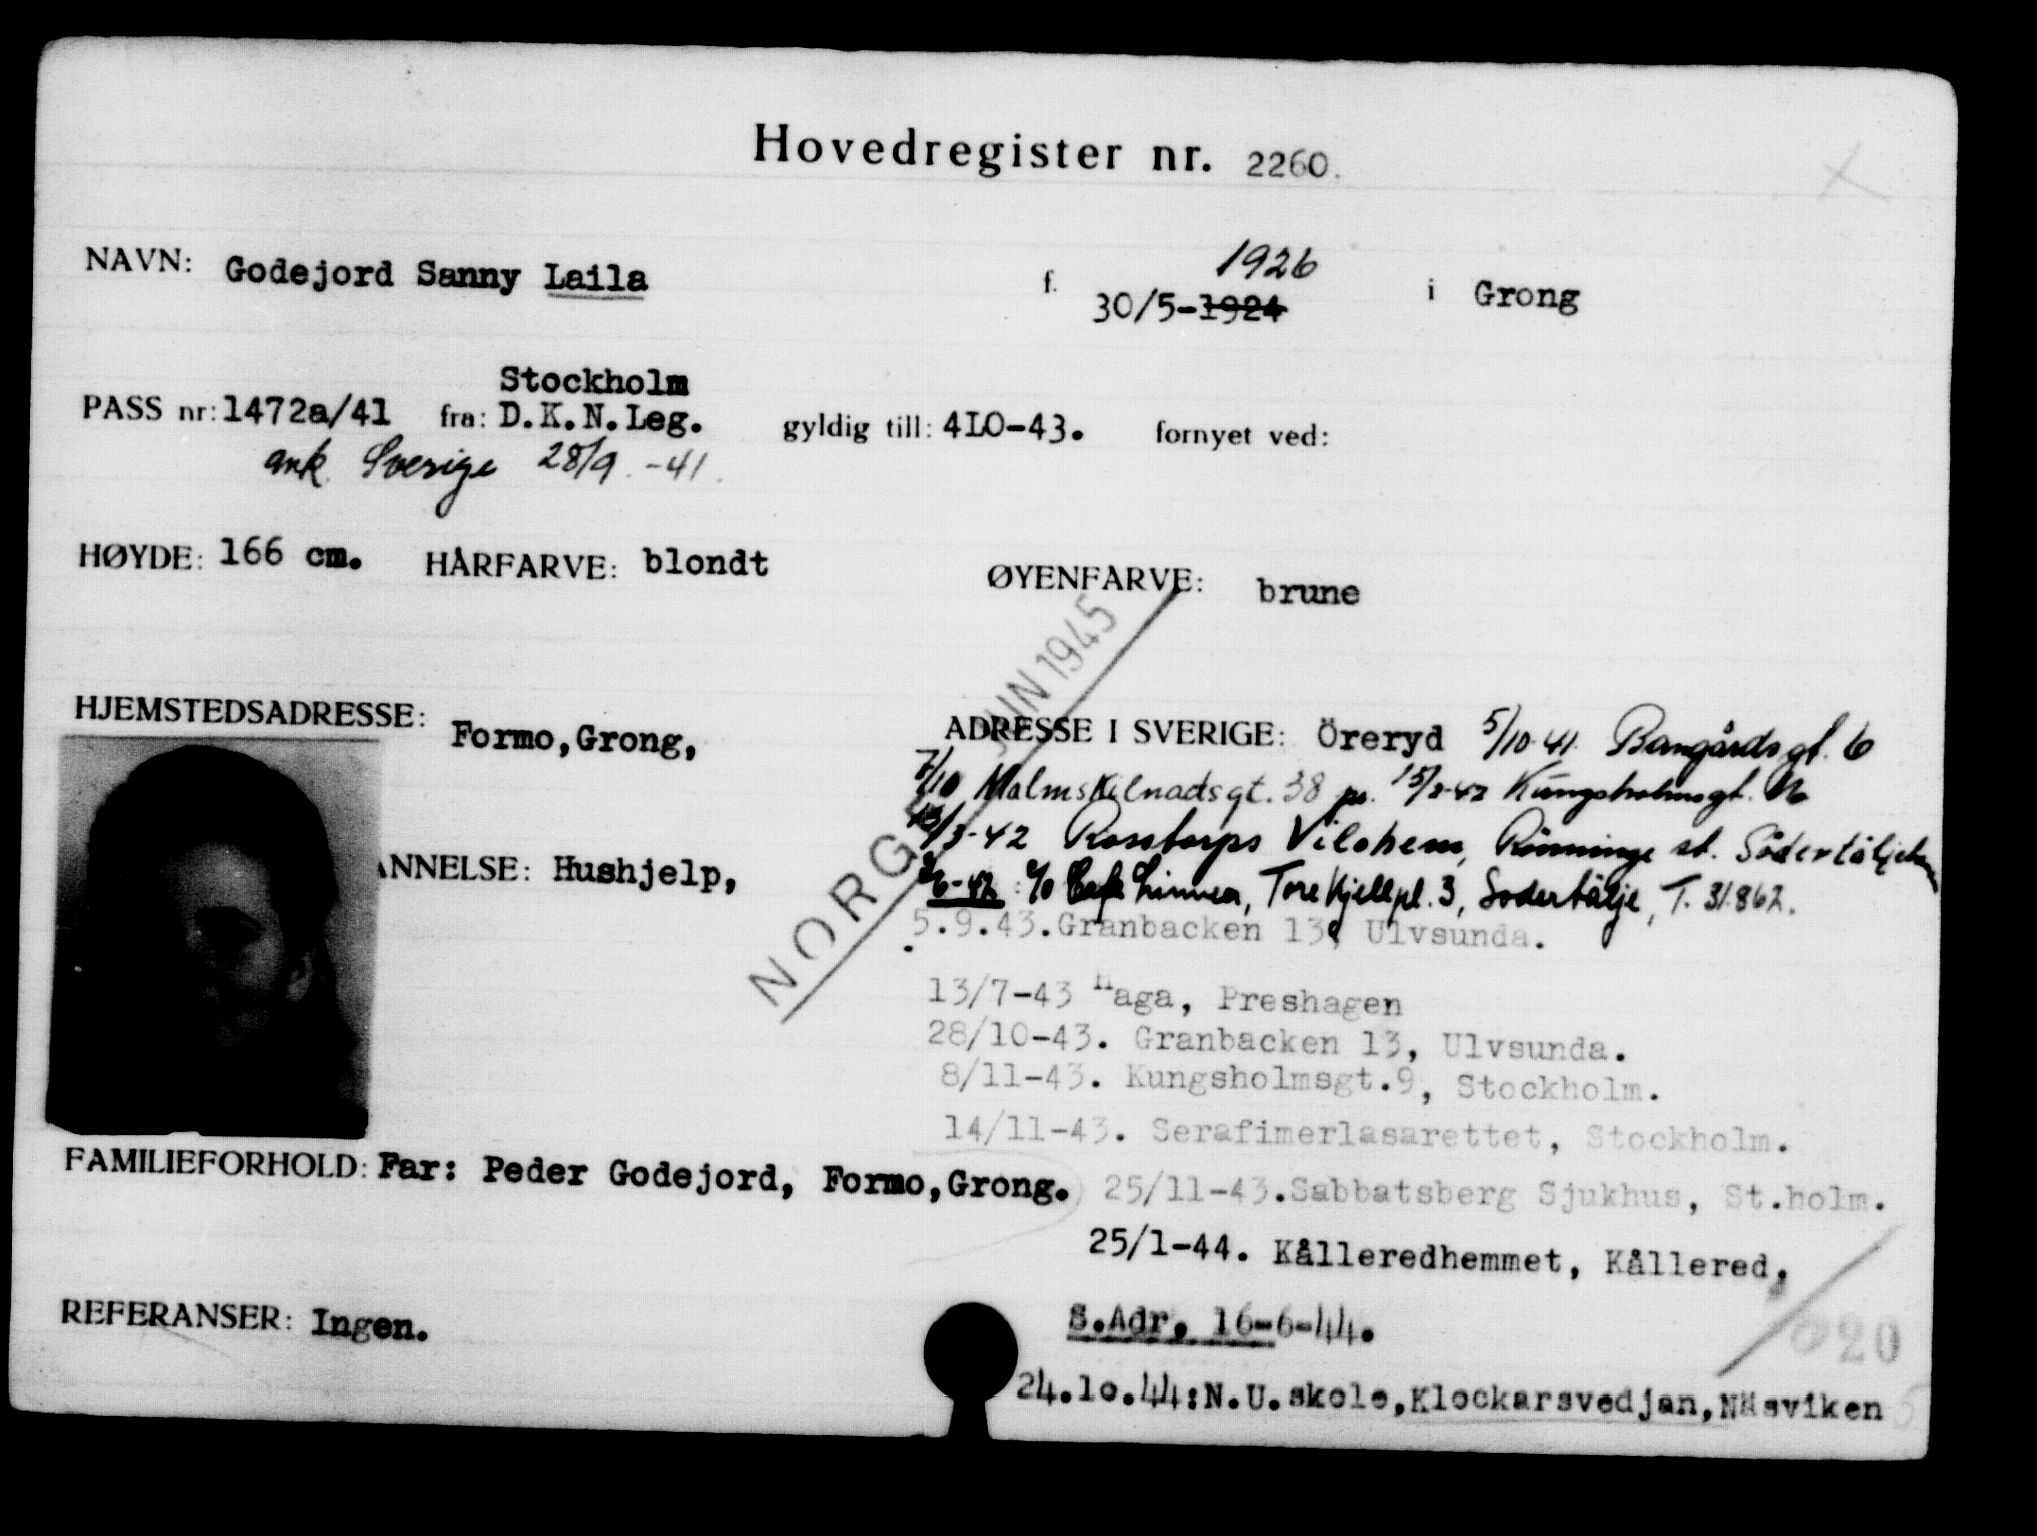 Hovedregister nr. 2260.
NAVN: Godejord Sanny Laila f. 30/5-1924 1926 i Grong
Stockholm
PASS nr: 1472a/41 fra: D.K.N.Leg. gyldig till: 4LO-43. fornyet ved:
ank. Sverige 28/9.-41.
HØYDE: 166 cm. HÅRFARVE: blondt ØYENFARVE: brune
NORGE JUN 1945
HJEMSTEDSADRESSE: Formo,Grong,
ADRESSE I SVERIGE: Öreryd 5/10-41. Bangårdsgt. 6
7/10 Malmskilnadsgt. 38 Kungsholmsgt.
/3-42 Rosstorps Vilohem, Rönninge st. Södertälje
ANNELSE: Hushjelp,
6-42 : c/o Café Linnea, Tore Kjellpl. 3, Södertälje, T. 31862.
5.9.43.Granbacken 13, Ulvsunda.
13/7-43 Haga, Preshagen
28/10-43. Granbacken 13, Ulvsunda.
8/11-43. Kungsholmsgt.9, Stockholm.
14/11-43. Serafimerlasarettet, Stockholm.
FAMILIEFORHOLD: Far: Peder Godejord, Formo,Grong.
25/11-43.Sabbatsberg Sjukhus, St.holm.
25/1-44. Kålleredhemmet, Kållered,
REFERANSER: Ingen.
S.Adr. 16-6-44.
20
24.10.44:N.U.skole,Klockarsvedjan,Näsviken